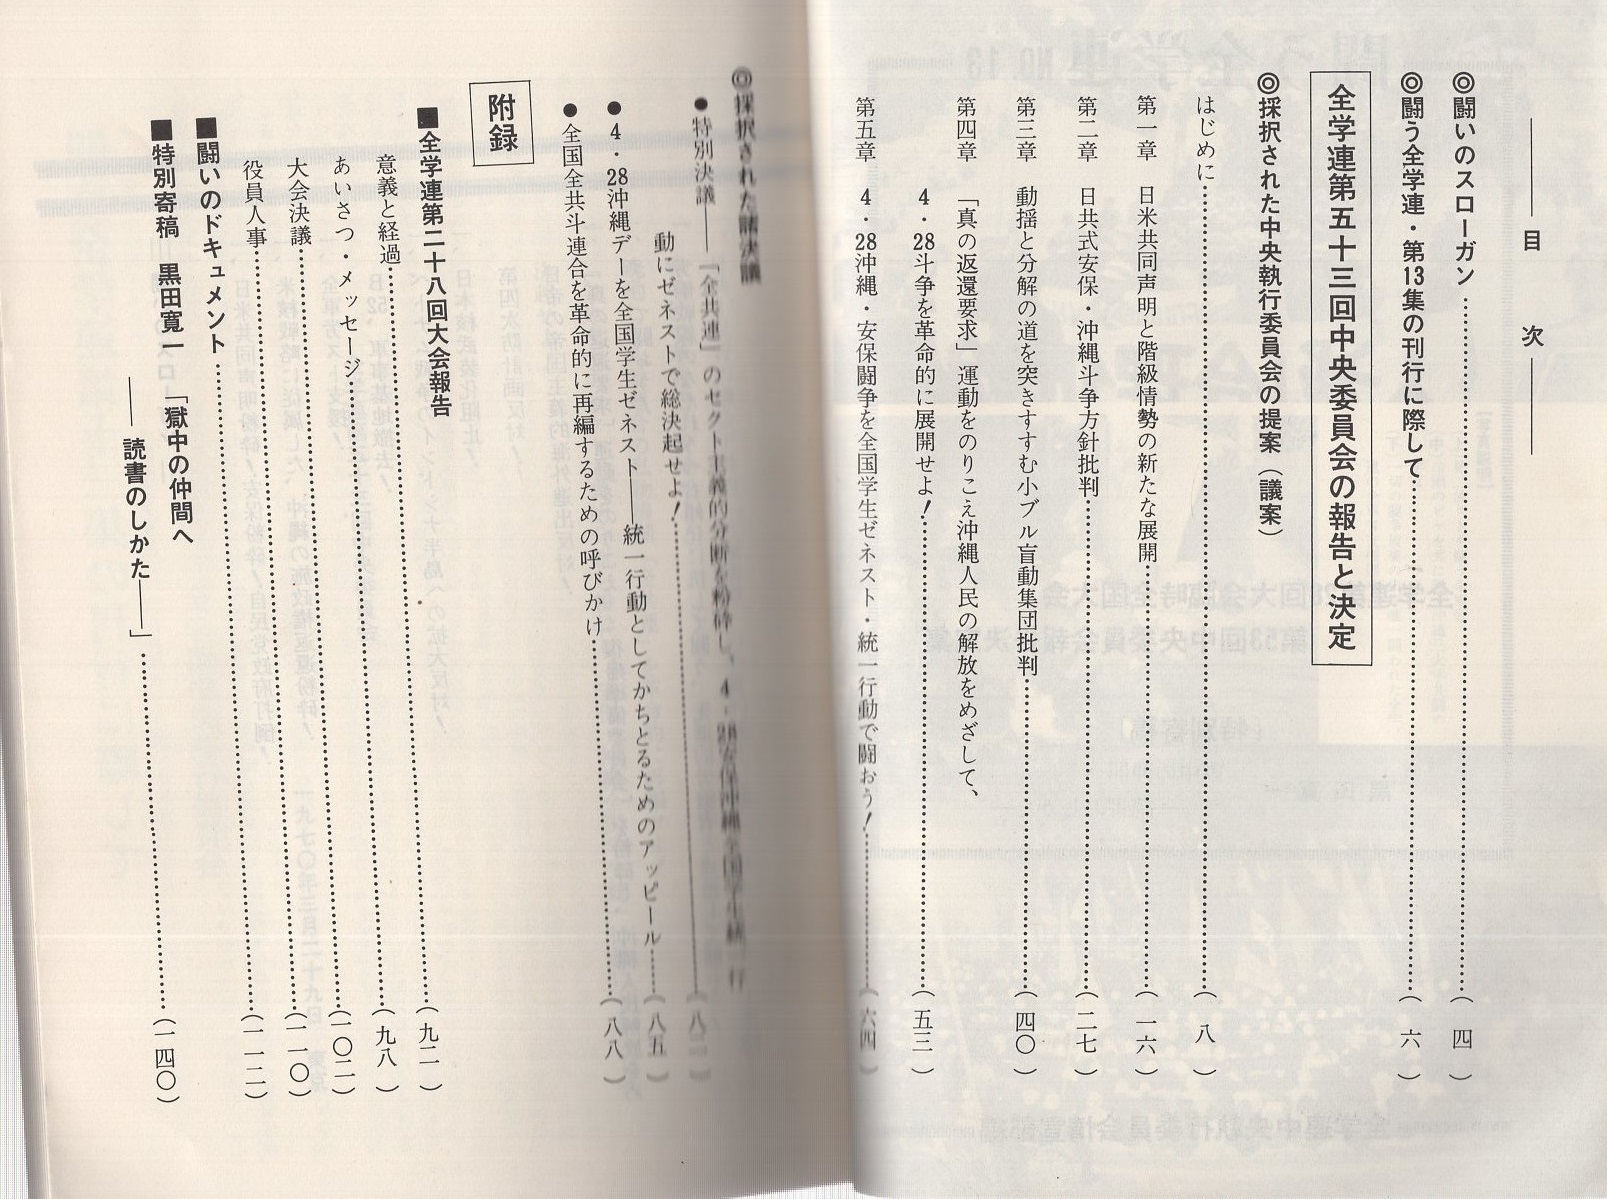 目次
◎闘いのスローガン……(四)
◎闘う全学連・第13集の刊行に際して……(六)
全学連第五十三回中央委員会の報告と決定
◎採択された中央執行委員会の提案(議案)
はじめに……(八)
第一章 日米共同声明と階級情勢の新たな展開……(一六)
第二章 日共式安保・沖縄斗争方針批判……(二七)
第三章 動揺と分解の道を突きすすむ小ブル盲動集団批判……(四〇)
第四章 「真の返還要求」運動をのりこえ沖縄人民の解放をめざして、
4・28斗争を革命的に展開せよ!……(五三)
第五章 4・28沖縄・安保闘争を全国学生ゼネスト・統一行動で闘おう!……(六四)
◎採択された諸決議
●特別決議――「全共連」のセクト主義的分断を粉砕し、4・28安保沖縄全国学生統一行
動にゼネストで総決起せよ!……
●4・28沖縄デーを全国学生ゼネスト――統一行動としてかちとるためのアッピール……(八五)
●全国全共斗連合を革命的に再編するための呼びかけ……(八八)
附録
■全学連第二十八回大会報告……(九二)
意義と経過……(九八)
あいさつ・メッセージ……(一〇二)
大会決議……(一一〇)
役員人事……(一一二)
■闘いのドキュメント
■特別寄稿 黒田寛一「獄中の仲間へ
――読書のしかた――」……(一四〇)